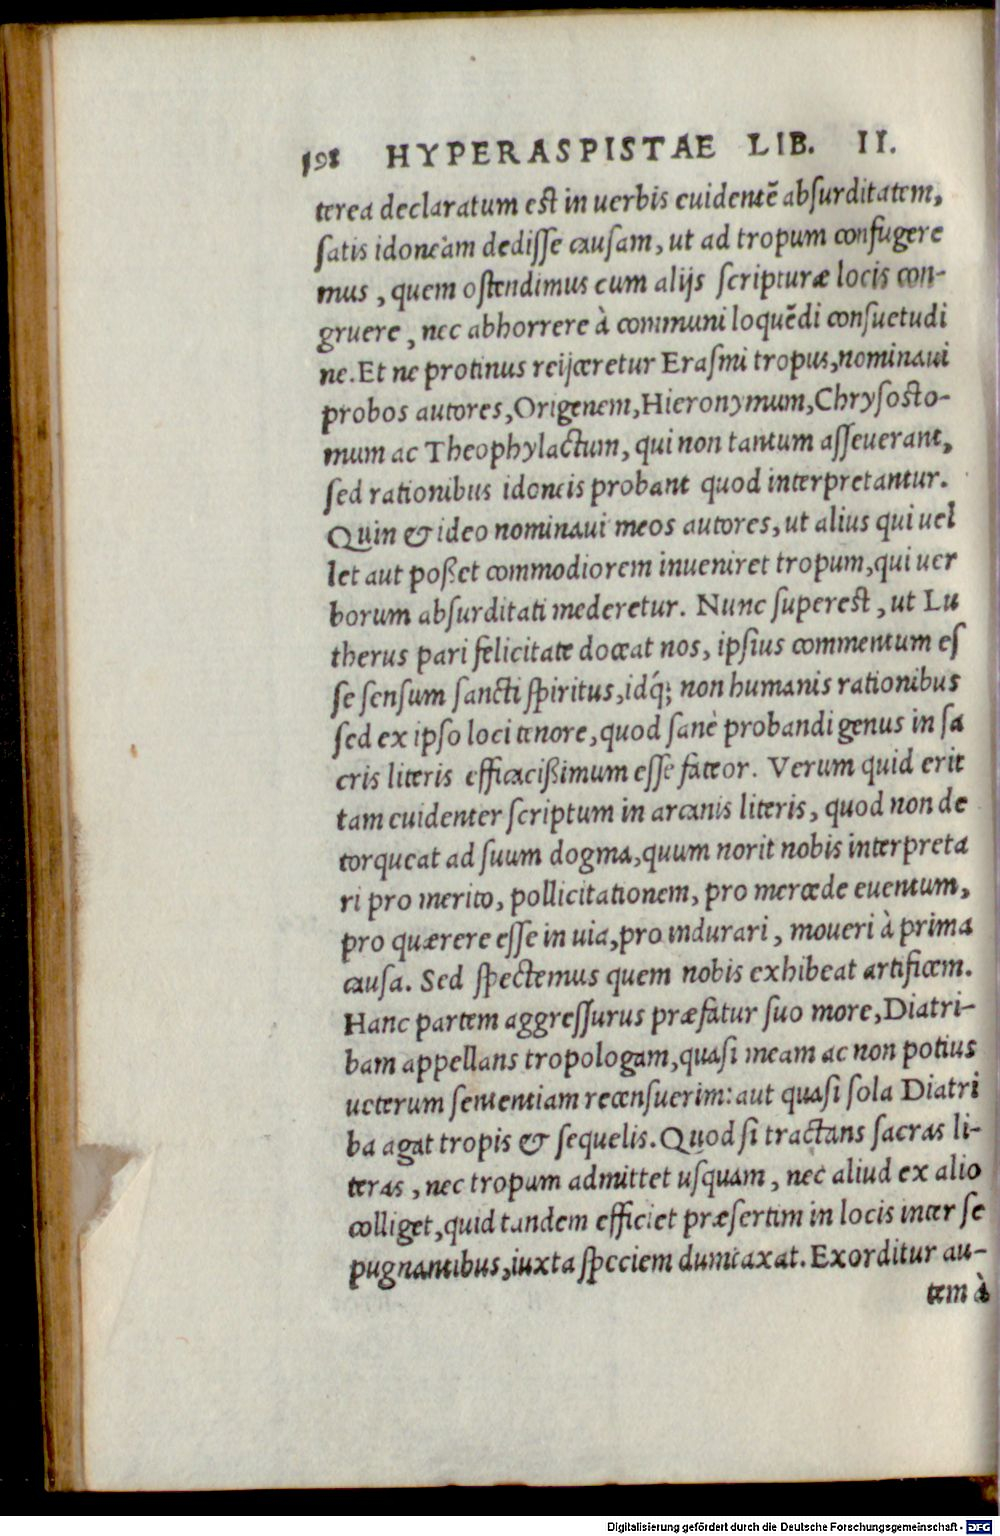 198 HYPERASPISTAE LIB. II.
terea declaratum est in uerbis euidentē absurditatem,
satis idoneam dedisse causam, ut ad tropum confugere
mus, quem ostendimus cum alijs scripturæ locis con-
gruere, nec abhorrere à communi loquēdi consuetudi
ne. Et ne protinus reijceretur Erasmi tropus, nominaui
probos autores, Origenem, Hieronymum, Chrysosto-
mum ac Theophylactum, qui non tantum asseuerant,
sed rationibus idoneis probant quod interpretantur.
Quin & ideo nominaui meos autores, ut alius qui uel
let aut posset commodiorem inueniret tropum, qui uer
borum absurditati mederetur. Nunc superest, ut Lu
therus pari felicitate doceat nos, ipsius commentum es
se sensum sancti spiritus, idq́; non humanis rationibus
sed ex ipso loci tenore, quod sanè probandi genus in sa
cris literis efficacissimum esse fateor. Verum quid erit
tam euidenter scriptum in arcanis literis, quod non de
torqueat ad suum dogma, quum norit nobis interpreta
ri pro merito, pollicitationem, pro mercede euentum,
pro quærere esse in uia, pro indurari, moueri à prima
causa. Sed spectemus quem nobis exhibeat artificem.
Hanc partem aggressurus præfatur suo more, Diatri-
bam appellans tropologam, quasi meam ac non potius
ueterum sententiam recensuerim: aut quasi sola Diatri
ba agat tropis & sequelis. Quod si tractans sacras li-
teras, nec tropum admittet usquam, nec aliud ex alio
colliget, quid tandem efficiet præsertim in locis inter se
pugnantibus, iuxta speciem dumtaxat. Exorditur au-
tem à
Digitalisierung gefördert durch die Deutsche Forschungsgemeinschaft - DFG